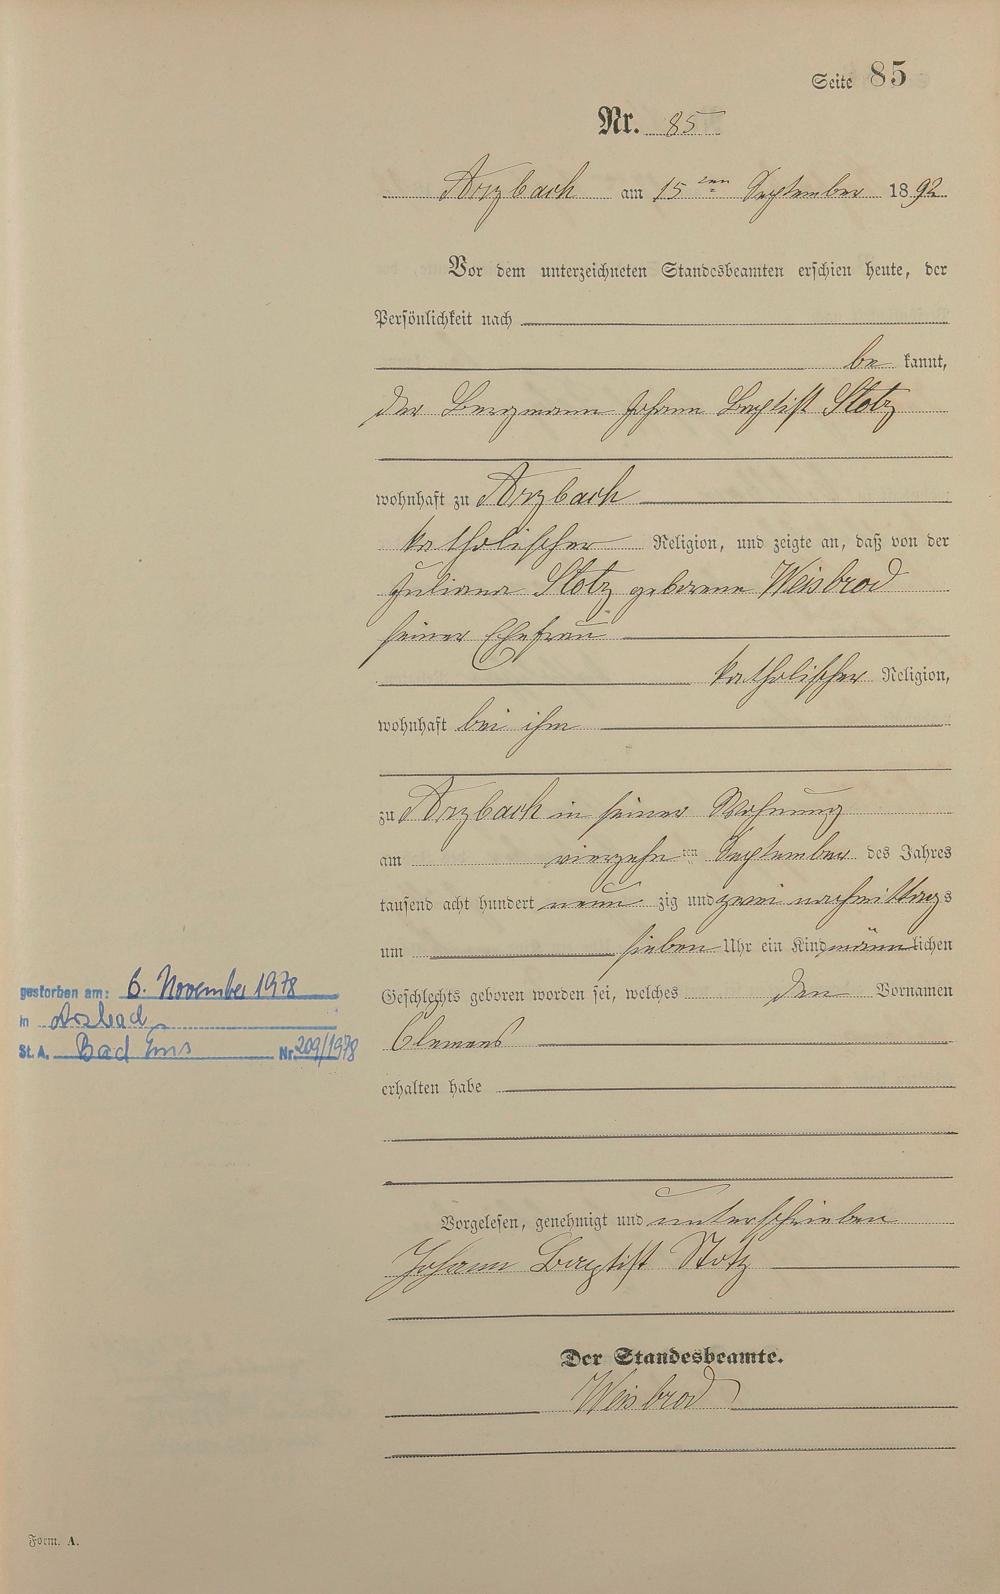 Seite 85
Nr. 85
Arzbach am 15ten September 1892
Vor dem unterzeichneten Standesbeamten erschien heute, der
Persönlichkeit nach
be kannt,
der Bergmann Johann Baptist Stotz
wohnhaft zu Arzbach
katholischer Religion, und zeigte an, daß von der
Juliana Stotz geborene Weisbrod
seiner Ehefrau
katholischer Religion,
wohnhaft bei ihm
zu Arzbach in seiner Wohnung
am vierzehnten September des Jahres
tausend acht hundert neun zig und zwei nachmittags
um sieben Uhr ein Kind männlichen
Geschlechts geboren worden sei, welches den Vornamen
Clemens
erhalten habe
gestorben am: 6. November 1978
in Arzbach
St. A. Bad Ems Nr. 209/1978
Vorgelesen, genehmigt und unterschrieben
Johann Baptist Stotz
Der Standesbeamte.
Weisbrod
Form. A.